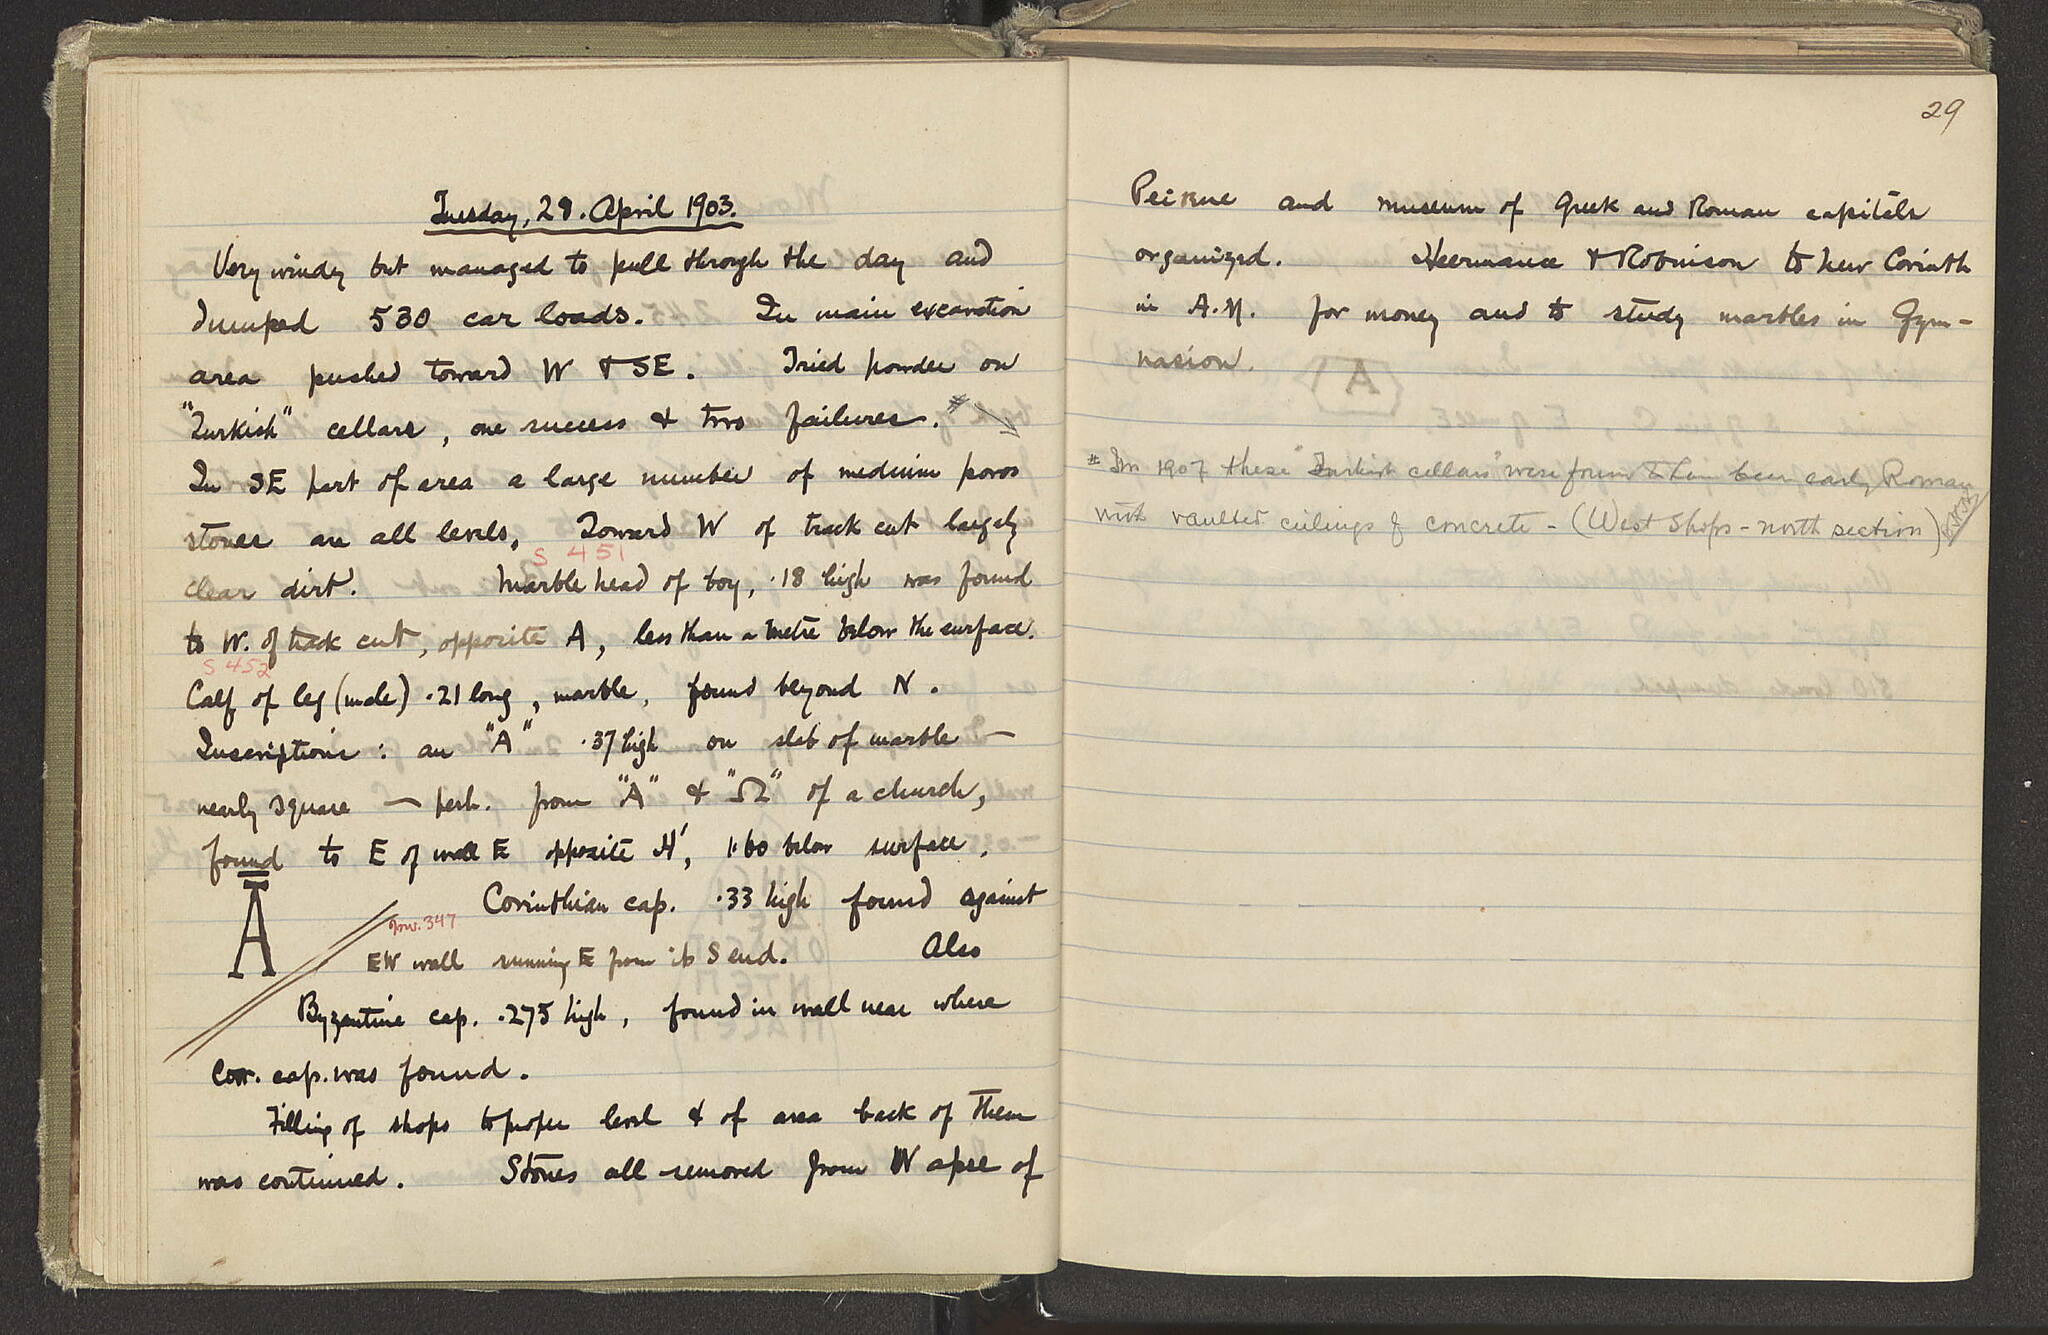 Tuesday, 28. April 1903.
Very windy but managed to pull through the day and
dumped 530 car loads. In main excavation
area pushed toward W & SE. Tried powder on
"Turkish" cellars, one success & two failures. #
In SE part of area a large number of medium poros
stones are all levels, Toward W of track cut largely
S 451
clear dirt. Marble head of boy, .18 high was found
to W. of track cut, opposite A, less than a metre below the surface.
S 452
Calf of leg (male) .21 long, marble, found beyond N.
Inscriptions: an "A" .37 high on slab of marble —
nearly square — perh. from "A" & "Ω" of a church,
found to E of wall E opposite H', 1.60 below surface.
A
Corinthian cap. .33 high found against
Inv. 347
EW wall running E from its S end. Also
Byzantine cap. .275 high, found in wall near where
Cor. cap. was found.
Filling of shops to proper level & of area back of them
was continued. Stones all removed from W apse of
29
Peirene and museum of Greek and Roman capitals
organized. Heermance & Robinson to New Corinth
in A.M. for money and to study marbles in Gym-
nasion.
A
# In 1907 these "Turkish cellars" were found to have been early Roman
with vaulted ceilings of concrete - (West Shops - north section)